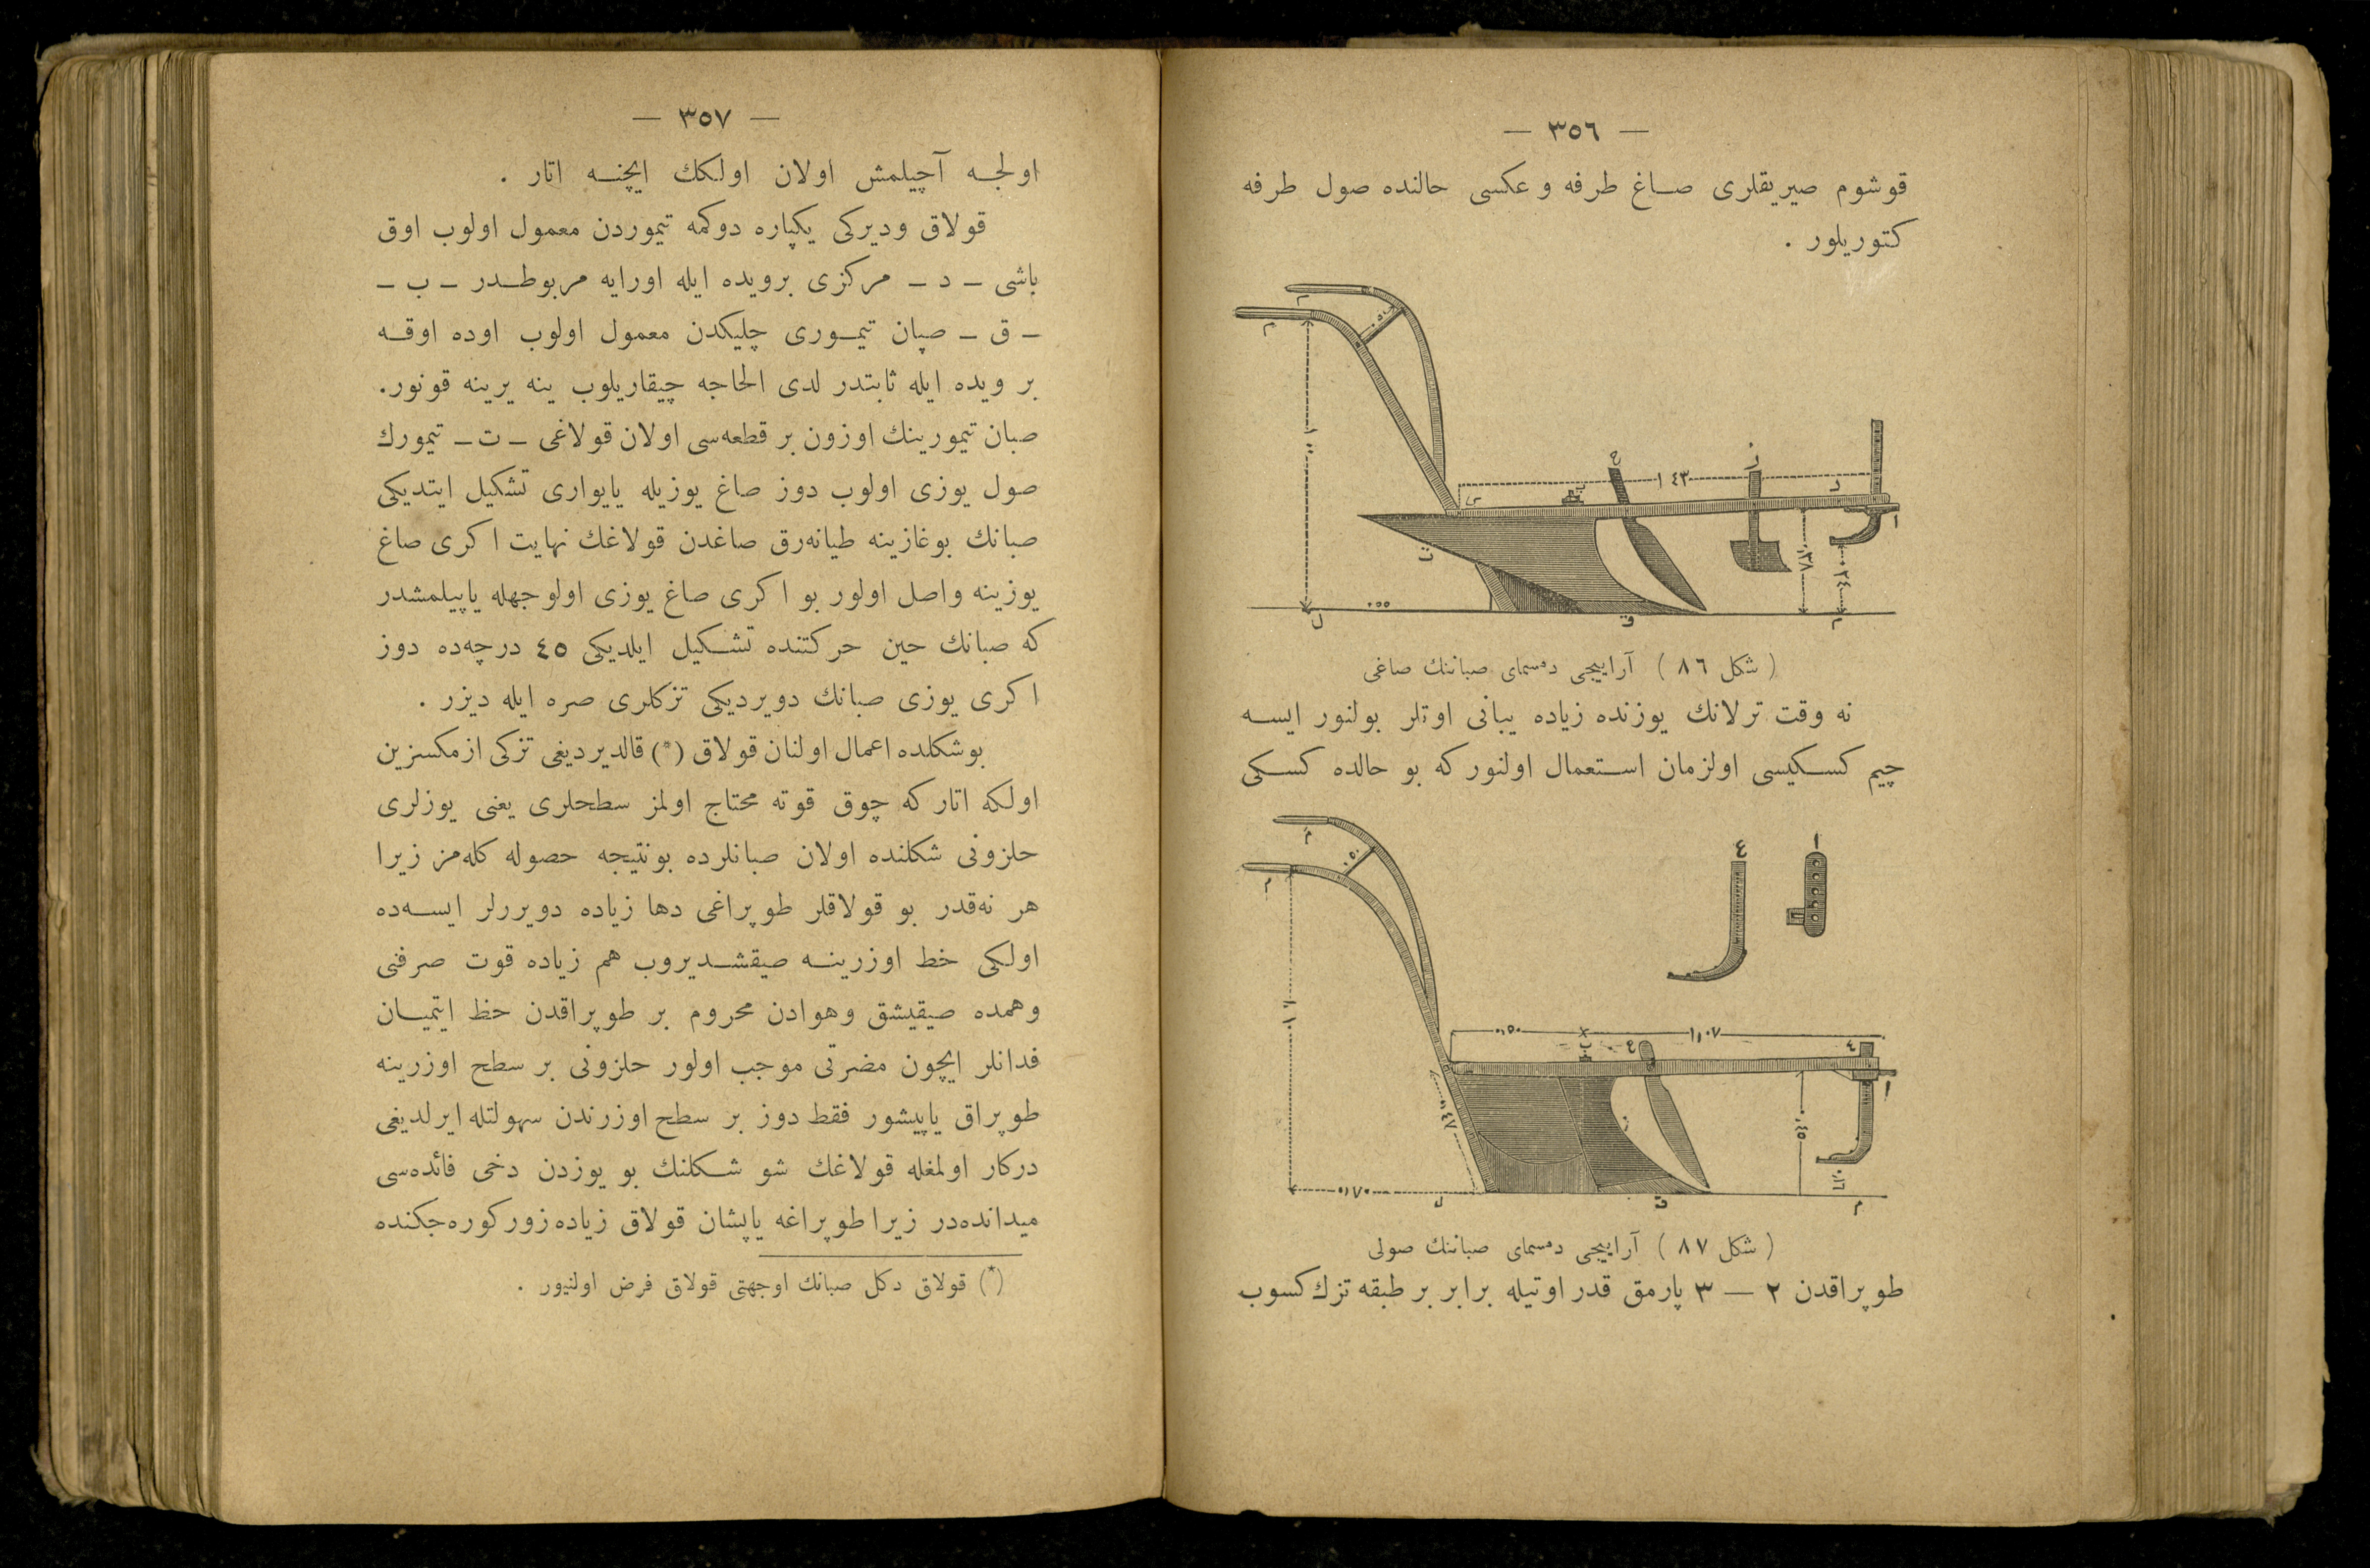 — ٣٥٦ —
قوشوم صيريقلرى صاغ طرفه وعكسى حالنده صول طرفه
كتوريلور .
( شكل ٨٦ ) آراييجى دمسماى صباننك صاغى
نه وقت ترلانك يوزنده زياده يبانى اوتلر بولنور ايسه
چيم كسكيسى اولزمان استعمال اولنور كه بو حالده كسكى
( شكل ٨٧ ) آراييجى دمسماى صباننك صولى
طوپراقدن ٢ — ٣ پارمق قدر اوتيله برابر بر طبقه تزك كسوب
— ٣٥٧ —
اولجه آچيلمش اولان اولكك ايچنه اتار .
قولاق وديركى يكپاره دوكمه تيموردن معمول اولوب اوق
باشى – د – مركزى برويده ايله اورايه مربوطدر – ب –
– ق – صپان تيمورى چليكدن معمول اولوب اوده اوقه
بر ويده ايله ثابتدر لدى الحاجه چيقاريلوب ينه يرينه قونور.
صبان تيمورينك اوزون بر قطعه‌سى اولان قولاغى – ت – تيمورك
صول يوزى اولوب دوز صاغ يوزيله يايوارى تشكيل ايتديكى
صبانك بوغازينه طيانه‌رق صاغدن قولاغك نهايت اكرى صاغ
يوزينه واصل اولور بو اكرى صاغ يوزى اولوجهله ياپيلمشدر
كه صبانك حين حركتنده تشكيل ايلديكى ٤٥ درچه‌ده دوز
اكرى يوزى صبانك دويرديكى تزكلرى صره ايله ديزر .
بوشكلده اعمال اولنان قولاق (*) قالديرديغى تزكى ازمكسزين
اولكه اتار كه چوق قوته محتاج اولمز سطحلرى يعنى يوزلرى
حلزونى شكلنده اولان صبانلرده بونتيجه حصوله كله‌مز زيرا
هر نه‌قدر بو قولاقلر طوپراغى دها زياده دويررلر ايسه‌ده
اولكى خط اوزرينه صيقشديروب هم زياده قوت صرفنى
وهمده صيقيشق وهوادن محروم بر طوپراقدن حظ ايتميان
فدانلر ايچون مضرتى موجب اولور حلزونى بر سطح اوزرينه
طوپراق ياپيشور فقط دوز بر سطح اوزرندن سهولتله ايرلديغى
دركار اولمغله قولاغك شو شكلنك بو يوزدن دخى فائده‌سى
ميدانده‌در زيرا طوپراغه ياپشان قولاق زياده زور كوره‌جكنده
(*) قولاق دكل صبانك اوجهتى قولاق فرض اولنيور .